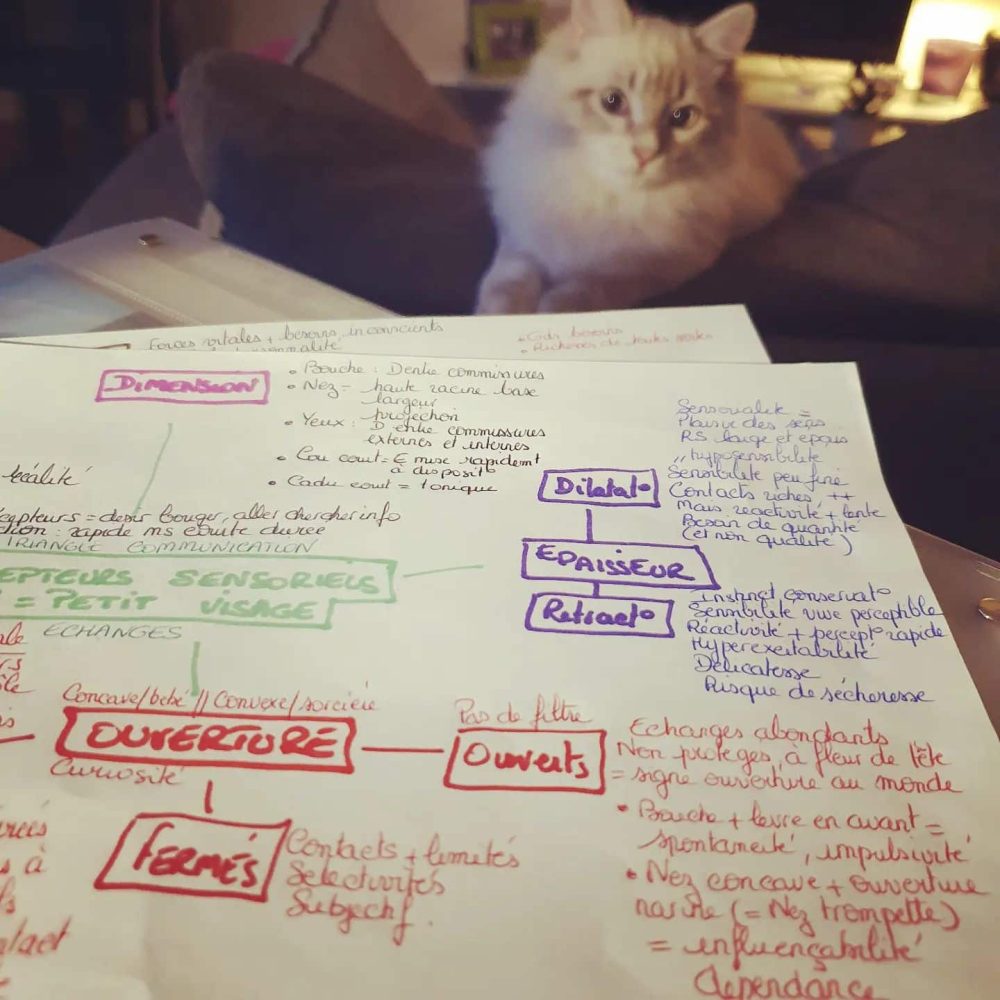 Forces vitales + besoins inconscients
• Cdr besoins
DIMENSION
• Bouche : D entre commissures
• Nez = haute racine base
largeur
projection
• Yeux : D entre commissures
externes et internes
• Cou court = E mise rapidemt
à disposit°
• Cadre court = tonique
Sensualité =
Plaisir des sens
RS large et épais
"hyposensibilité
Sensibilité peu fine
Contacts riches ++
Mais réactivité + lente
Besoin de quantité
(et non qualité)
Dilatat°
EPAISSEUR
Rétract°
Instinct conservat°
Sensibilité vive perceptible
Réactivité + percept° rapide
Hyperexcitabilité
Délicatesse
Risque de sécheresse
localité
cepteurs = désir bouger, aller chercher info
ction : rapide ms écoute durée
TRIANGLE COMMUNICATION
EPTEURS SENSORIELS
= PETIT VISAGE
ECHANGES
Concave/bébé // Convexe/sorcière
OUVERTURE
Curiosité
Pas de filtre
Ouverts
Echanges abondants
Non protégés, à fleur de tête
= signe ouverture au monde
• Bouche + lèvre en avant =
spontanéité, impulsivité
• Nez concave + ouverture
narine (= Nez trompette)
= influençabilité
dépendance
FERMÉS
Contacts + limités
Sélectivités
Subjectif.